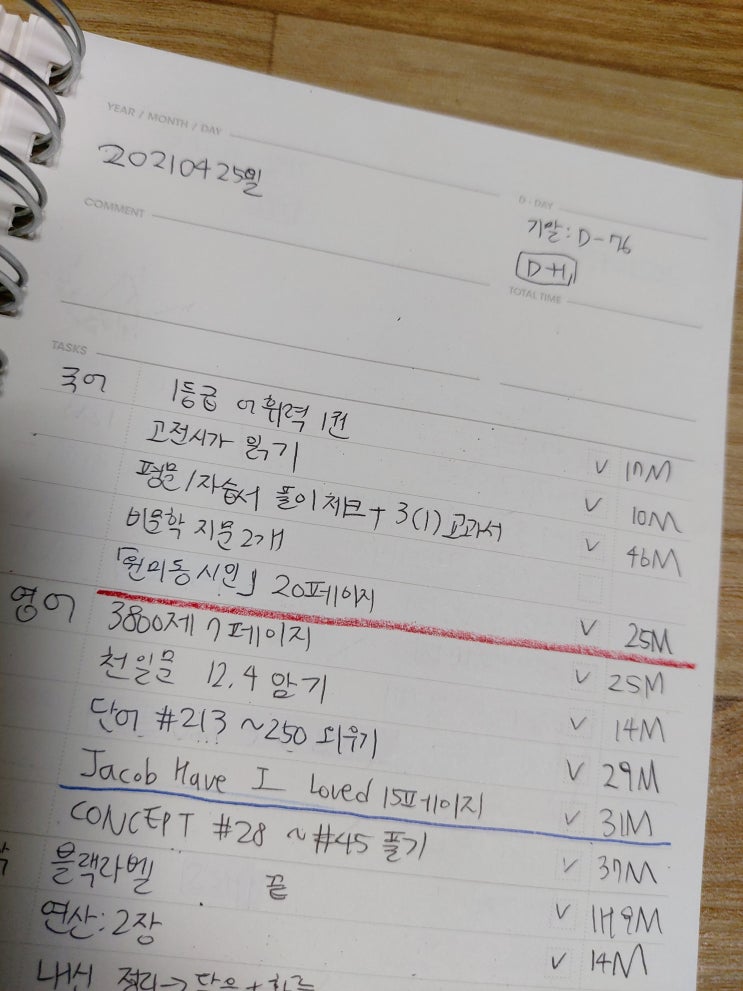 YEAR / MONTH / DAY
20210425일
D-DAY
기말: D-76
COMMENT
TOTAL TIME
TASKS
국어 1등급 어휘력 1권
고전시가 읽기 ✓ 17M
평문/자습서 풀이체크 + 3(1)교과서 ✓ 10M
비문학 지문 2개 ✓ 46M
「원미동 시인」 20페이지
영어 3800제 7페이지 ✓ 25M
천일문 12.4 암기 ✓ 25M
단어 #213 ~250 외우기 ✓ 14M
Jacob Have I Loved 15페이지 ✓ 29M
CONCEPT #28 ~ #45 풀기 ✓ 31M
블랙라벨 끝 ✓ 37M
연산: 2장 ✓ 1H 9M
내신 정리→ ✓ 14M